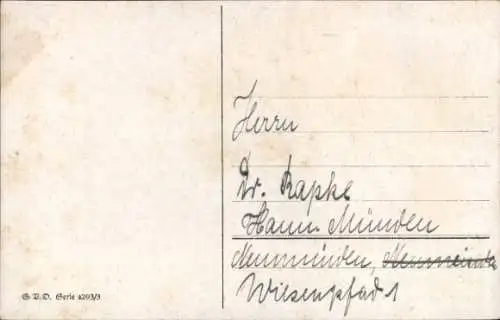 Herrn
Dr. Rapke
Hann. Münden
Neumünden,
Wiesenpfad 1
G.V.D. Serie 4203/3